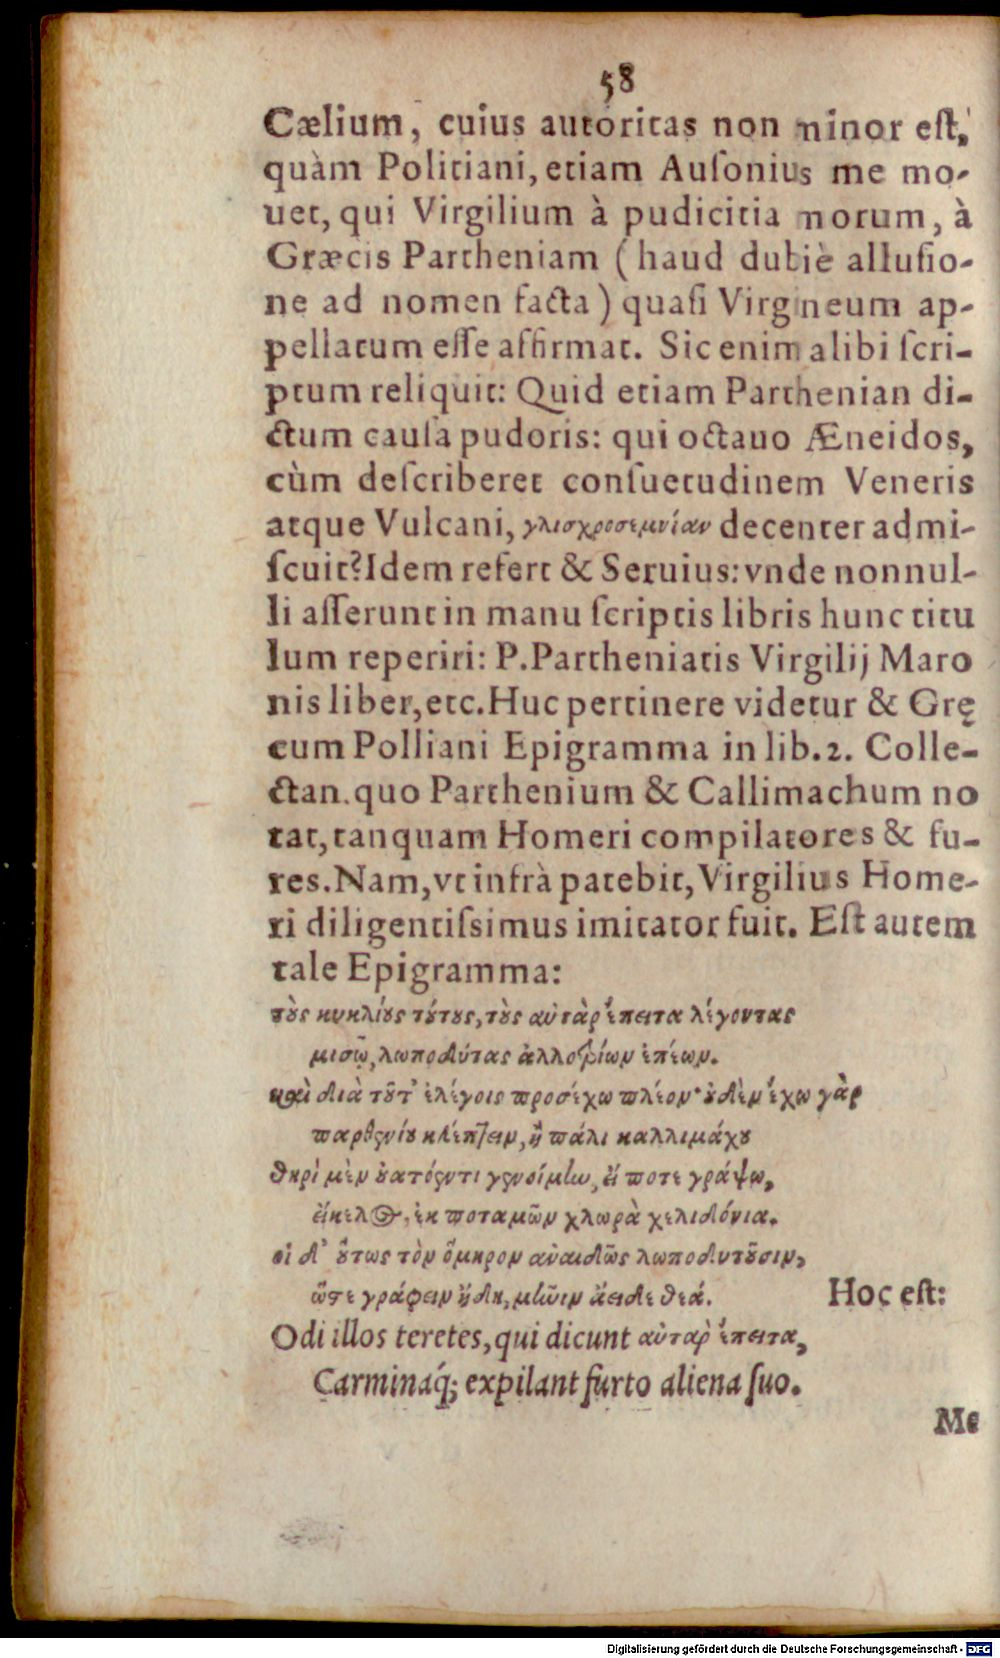 58
Cælium, cuius autoritas non minor eſt,
quàm Politiani, etiam Auſonius me mo-
uet, qui Virgilium à pudicitia morum, à
Græcis Partheniam (haud dubiè alluſio-
ne ad nomen facta) quaſi Virgineum ap-
pellatum eſſe affirmat. Sic enim alibi ſcri-
ptum reliquit: Quid etiam Parthenian di-
ctum cauſa pudoris: qui octauo Æneidos,
cùm deſcriberet conſuetudinem Veneris
atque Vulcani, γλισχροσεμνίαν decenter admi-
ſcuit? Idem refert & Seruius: vnde nonnul-
li aſſerunt in manu ſcriptis libris hunc titu
lum reperiri: P. Partheniatis Virgilij Maro
nis liber, etc. Huc pertinere videtur & Grę
cum Polliani Epigramma in lib. 2. Colle-
ctan. quo Parthenium & Callimachum no
tat, tanquam Homeri compilatores & fu-
res. Nam, vt infrà patebit, Virgilius Home-
ri diligentiſsimus imitator fuit. Eſt autem
tale Epigramma:
τοὺς κυκλίους τούτους, τοὺς αὐτὰρ ἔπειτα λέγοντας
μισῶ, λωποδύτας ἀλλοτρίων ἐπέων.
καὶ διὰ τοῦτ' ἐλέγοις προσέχω πλέον· οὐδὲν ἔχω γὰρ
παρθενίου κλέπτειν, ἢ πάλι καλλιμάχου
θηρὶ μὲν οὐατόεντι γενοίμην, εἴ ποτε γράψω,
εἴκελος, ἐκ ποταμῶν χλωρὰ χελιδόνια.
οἱ δ' οὕτως τὸν ὅμηρον ἀναιδῶς λωποδυτοῦσιν,
ὥστε γράφειν ἤδη, μῆνιν ἄειδε θεά. Hoc eſt:
Odi illos teretes, qui dicunt αὐτὰρ ἔπειτα,
Carminaq́; expilant furto aliena ſuo.
Me
Digitalisierung gefördert durch die Deutsche Forschungsgemeinschaft - DFG